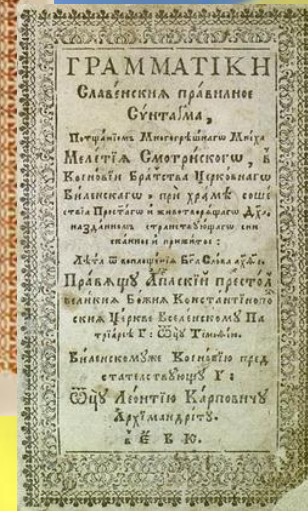 ГРАММАТІКИ
Славе́нскиѧ пра́вилное
Сѵ́нтаґма,
Потщанїемъ Многогрѣшнагѡ Мнїха
Мелетїѧ Смотрискогѡ, в̾
Коеновїи Братства Церковнагѡ
Виленскагѡ, при̏ храмѣ соше
ствїѧ Прест҃агѡ и животворѧщагѡ Дх҃а,
назданномъ странствующагѡ сни
сканное и прижитое:
Лѣта ѿ воплощенїѧ Бг҃а Слова ахѳ҃і.
Правѧщу Апⷭ҇лскїй престо́лъ
великиѧ Божиѧ Константинопо
скиѧ Церкве Вселенскому Па
трїархѣ Г: Ѿцу Тімоѳе́ю.
Виленскомуже Коеновїю пред
стателствующу Г:
Ѿцу Леонтїю Карповичу
Архїмандріту.
в̾ Е В Ю.